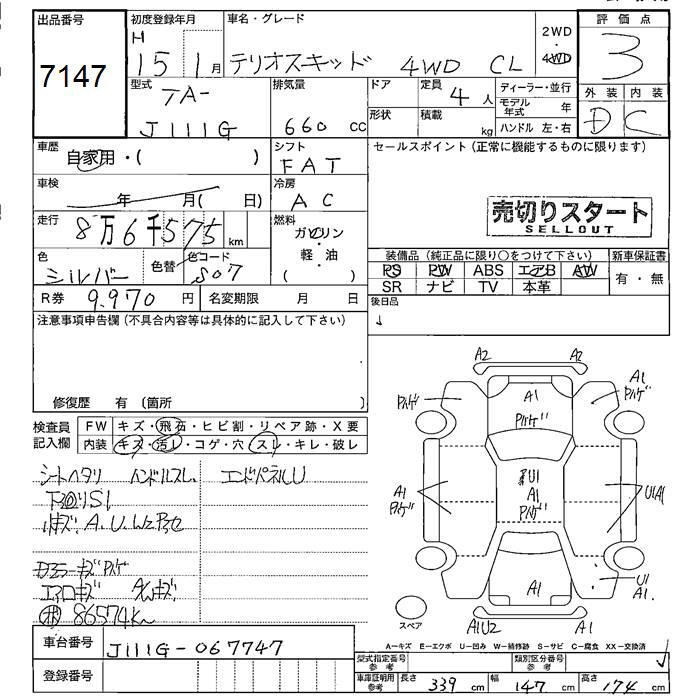 出品番号
7147
初度登録年月
H
15年 1月
車名・グレード
テリオスキッド 4WD CL
2WD
4WD
評価点
3
外装 内装
D C
型式
TA-
J111G
排気量
660 cc
ドア
定員
4人
形状
積載
kg
ディーラー・並行
モデル年式 年
ハンドル 左・右
車歴
自家用・( )
シフト
FAT
セールスポイント (正常に機能するものに限ります)
売切りスタート
SELLOUT
車検
年 月( 日)
冷房
AC
走行
8万6千575 km
燃料
ガソリン
・
軽・油
( )
色
シルバー
色替
色コード
S07
装備品 (純正品に限り○をつけて下さい)
PS PW ABS エアB AW
SR ナビ TV 本革
新車保証書
有・無
R券 9.970 円
名変期限 月 日
後日品
注意事項申告欄 (不具合内容等は具体的に記入して下さい)
修復歴 有 (箇所 )
検査員
記入欄
FW キズ・飛石・ヒビ割・リペア跡・X要
内装 キズ・汚レ・コゲ・穴・スレ・キレ・破レ
シートヘタリ ハンドルスレ エンドパネルU
下回りS1
86574km
A2 A2
A1
A1
A1
A1
A1
U1
A1
U1A1
A1
U1
A1
A1U2 A1
スペア
A-キズ E-エクボ U-凹み W-補修跡 S-サビ C-腐食 XX-交換済
車台番号 J111G-067747
登録番号
型式指定番号
参考
類別区分番号
参考
車庫証明用
参考
長さ 339 cm 幅 147 cm 高さ 174 cm